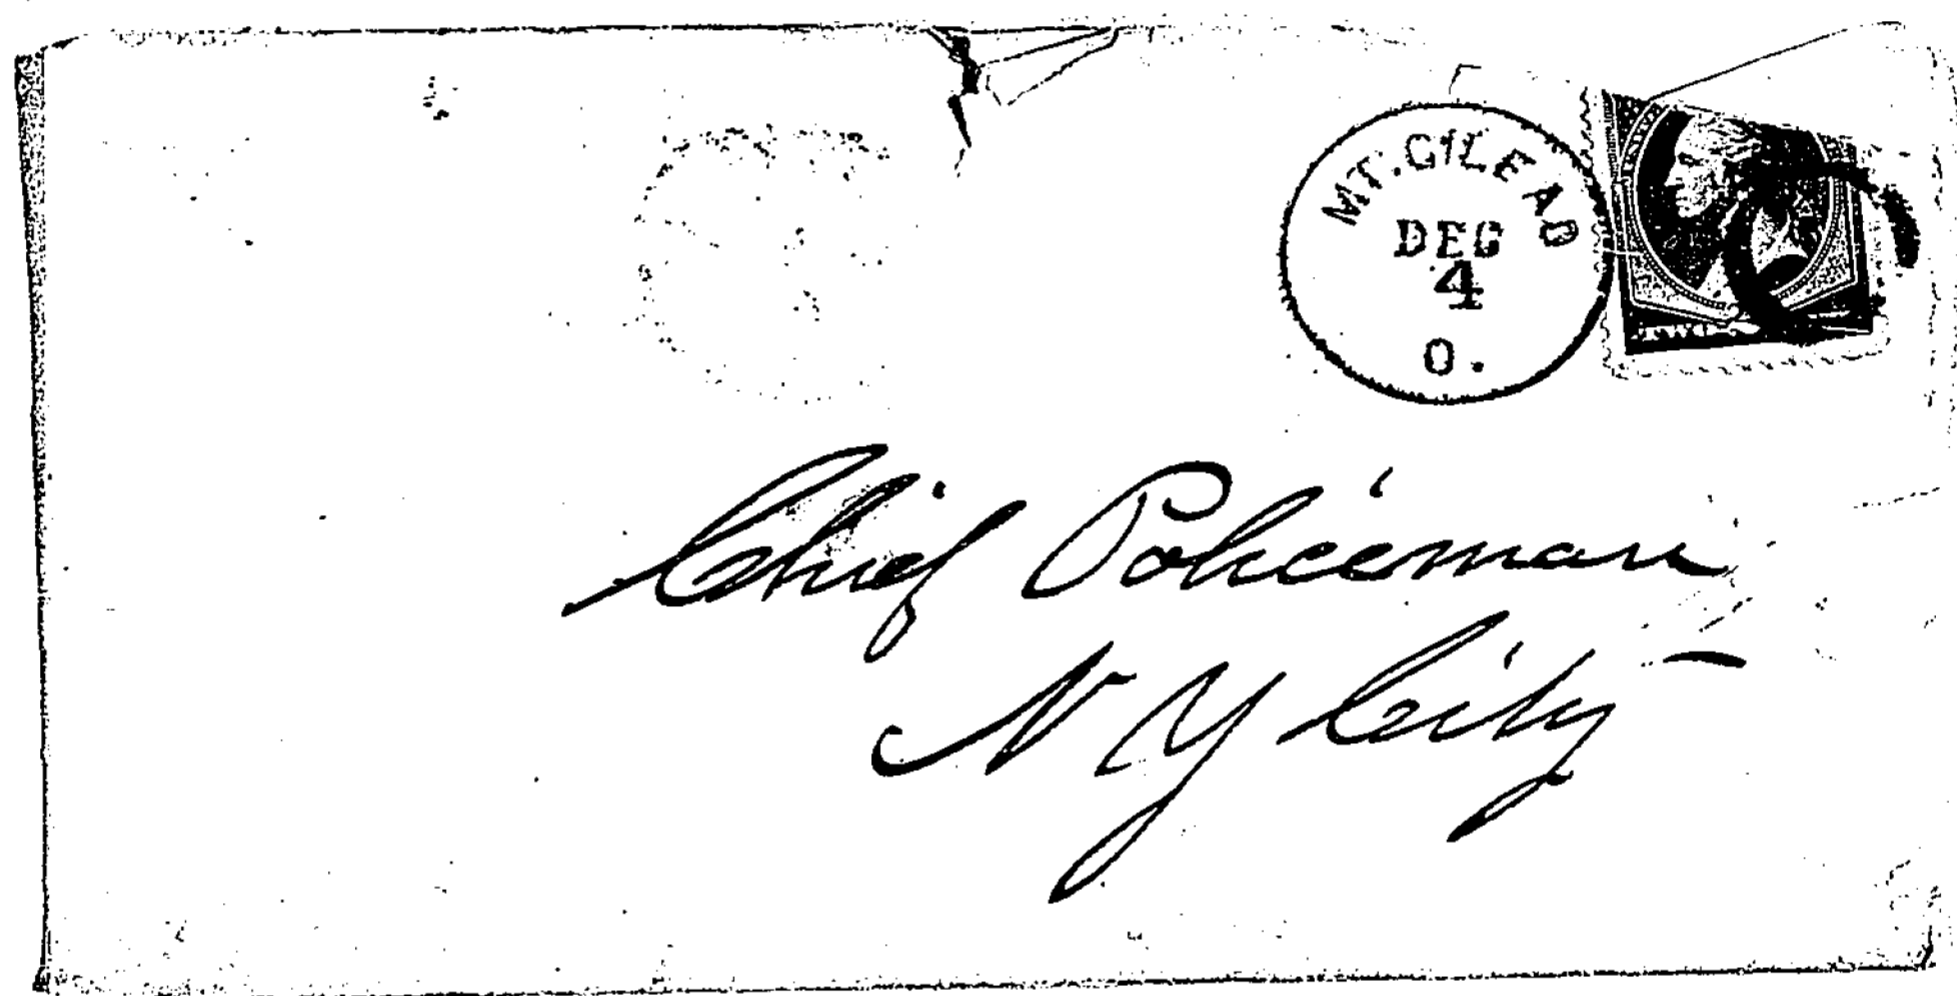 MT. GILEAD
DEC
4
O.
Chief Policeman
N Y City